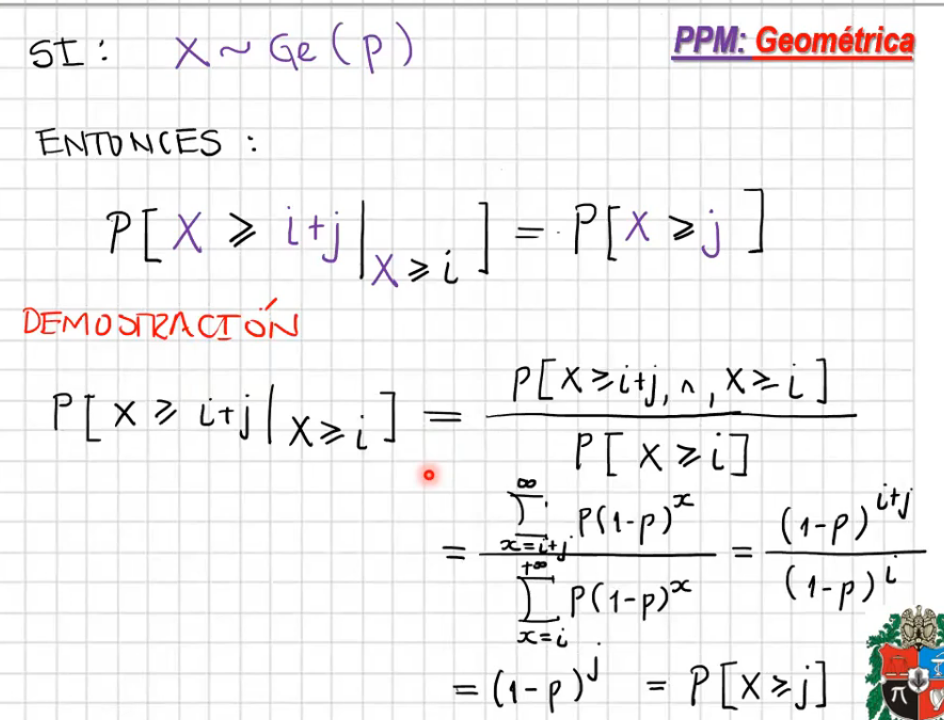 SI: X ~ Ge(p)
PPM: Geométrica
ENTONCES:
P[X ⩾ i+j | X ⩾ i] = P[X ⩾ j]
DEMOSTRACIÓN
P[X ⩾ i+j | X ⩾ i] = P[X ⩾ i+j, ∩, X ⩾ i] / P[X ⩾ i]
= ∑_{x=i+j}^{∞} P(1-p)^x / ∑_{x=i}^{+∞} P(1-p)^x = (1-p)^{i+j} / (1-p)^i
= (1-p)^j = P[X ⩾ j]
π